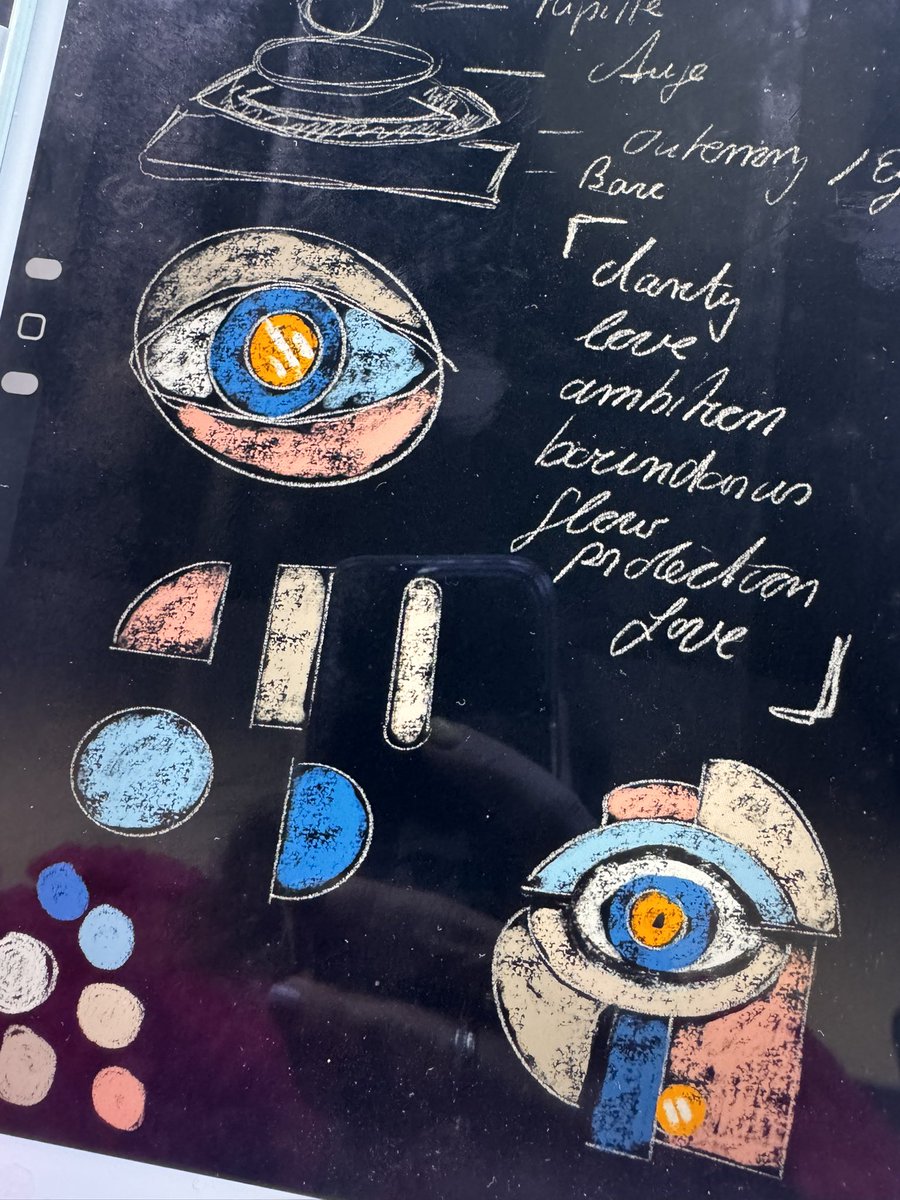 Pupille
Auge
Outemmy / E
Bare
clarity
love
ambition
boundaries
flow
protection
Love